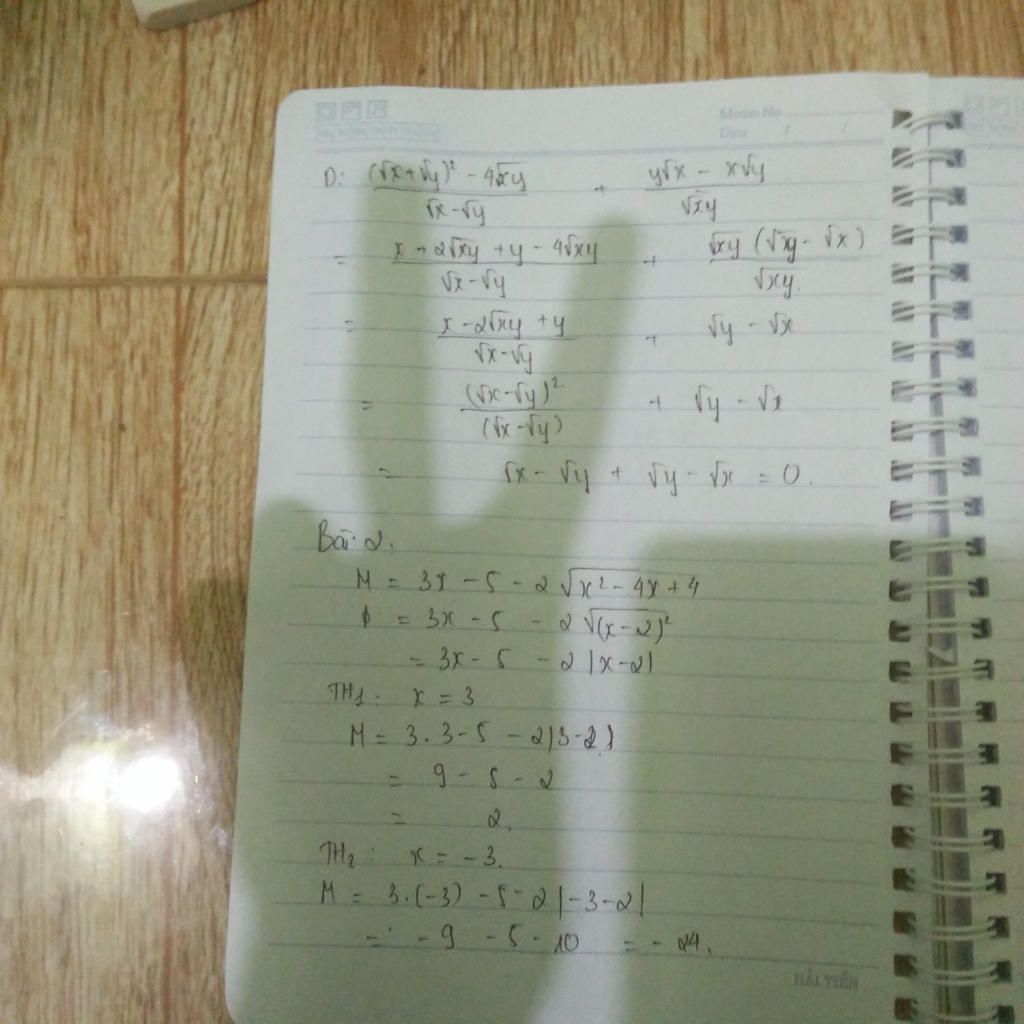 Memo No
Date / /
D: ((√x+√y)² - 4√xy)/(√x-√y) + (y√x - x√y)/√xy
= (x + 2√xy + y - 4√xy)/(√x-√y) + √xy (√xy - √x)/√xy.
= (x - 2√xy + y)/(√x-√y) + √y - √x
= (√x-√y)²/(√x-√y) + √y - √x
= √x - √y + √y - √x = 0.
Bài 2:
M = 3x - 5 - 2√(x² - 4x + 4)
= 3x - 5 - 2√(x-2)²
= 3x - 5 - 2|x-2|
TH₁: x = 3
M = 3.3 - 5 - 2|3-2|
= 9 - 5 - 2
= 2.
TH₂: x = -3.
M = 3.(-3) - 5 - 2|-3-2|
= -9 - 5 - 10 = - 24.